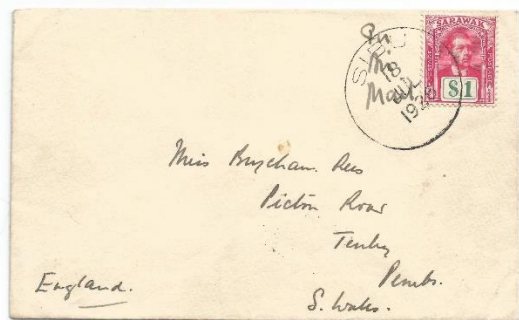 SARAWAK
$1
SIBU
18
1926
Miss Rees
Picton Road
Tenby
Pembs.
S. Wales.
England.